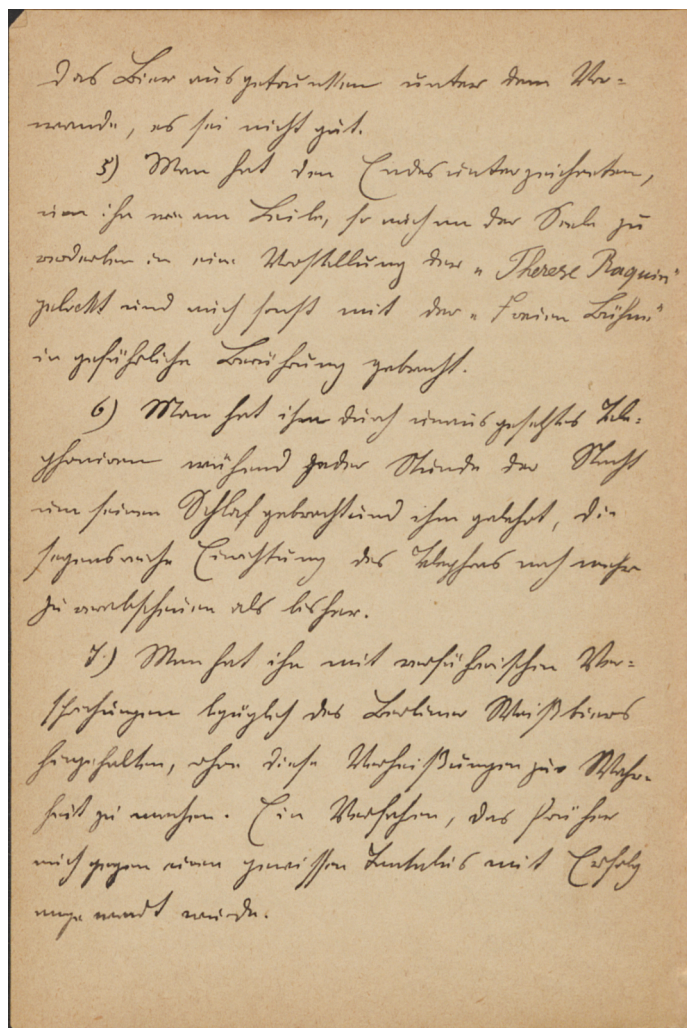 Das Bier ausgetrunken unter dem Vor-
wande, es sei nicht gut.
5) Man hat den Endesunterzeichneten,
um ihn wie am Leibe, so auch an der Seele zu
verderben in eine Vorstellung der „Therese Raquin"
gelockt und auch sonst mit der „Freien Bühne"
in gefährliche Berührung gebracht.
6) Man hat ihn durch unausgesetztes Tele-
phoniren während jeder Stunde der Nacht
um seinen Schlaf gebracht und ihm gelehrt, die
segensreiche Einrichtung des Telephons noch mehr
zu verabscheuen als bisher.
7.) Man hat ihn mit verführerischen Ver-
sprechungen bezüglich des Berliner Weißbiers
hingehalten, ohne diese Verheißungen zur Wahr-
heit zu machen. Ein Verfahren, das früher
auch gegen einen gewissen Tantalus mit Erfolg
angewandt wurde.